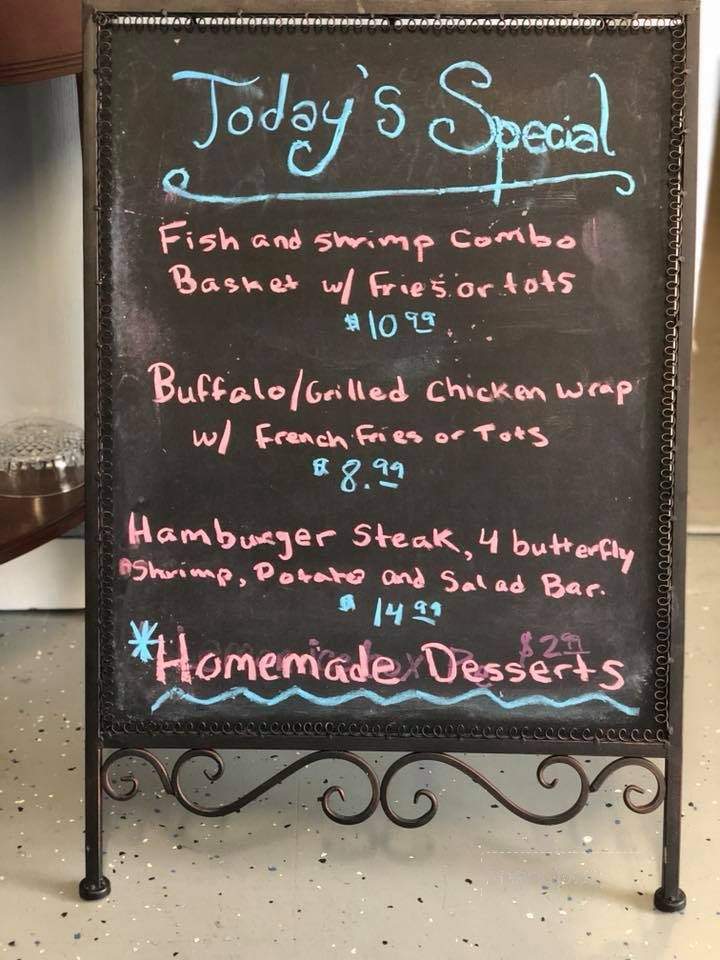 Today's Special
Fish and shrimp combo
Basket w/ Fries or tots
$10 99
Buffalo/Grilled Chicken wrap
w/ French Fries or Tots
$8.99
Hamburger Steak, 4 butterfly
Shrimp, Potato and Salad Bar.
$14 99
$2 99
*Homemade Desserts